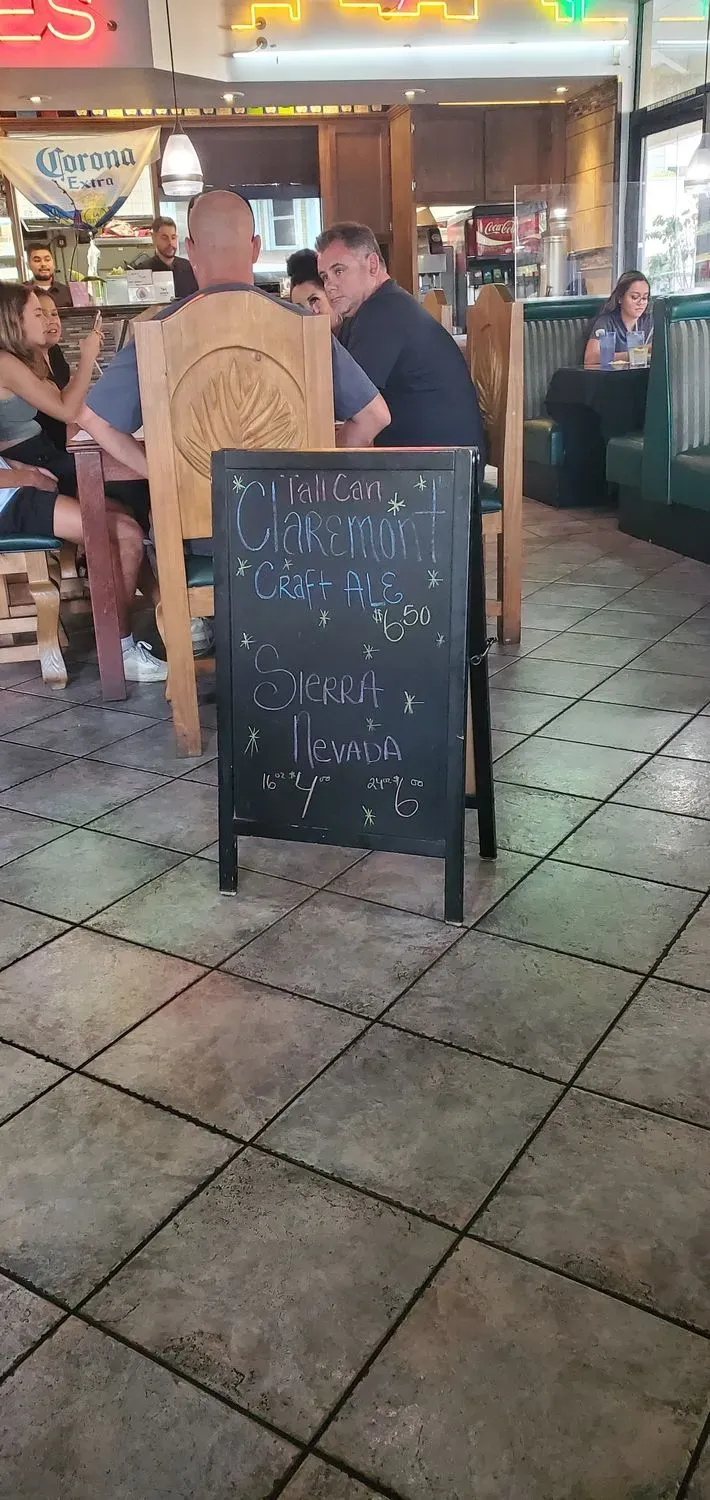 ES
Corona
Extra
Coca-Cola
Tall Can
Claremont
Craft ALE
$6.50
Sierra
Nevada
16oz $4.00 24oz $6.00